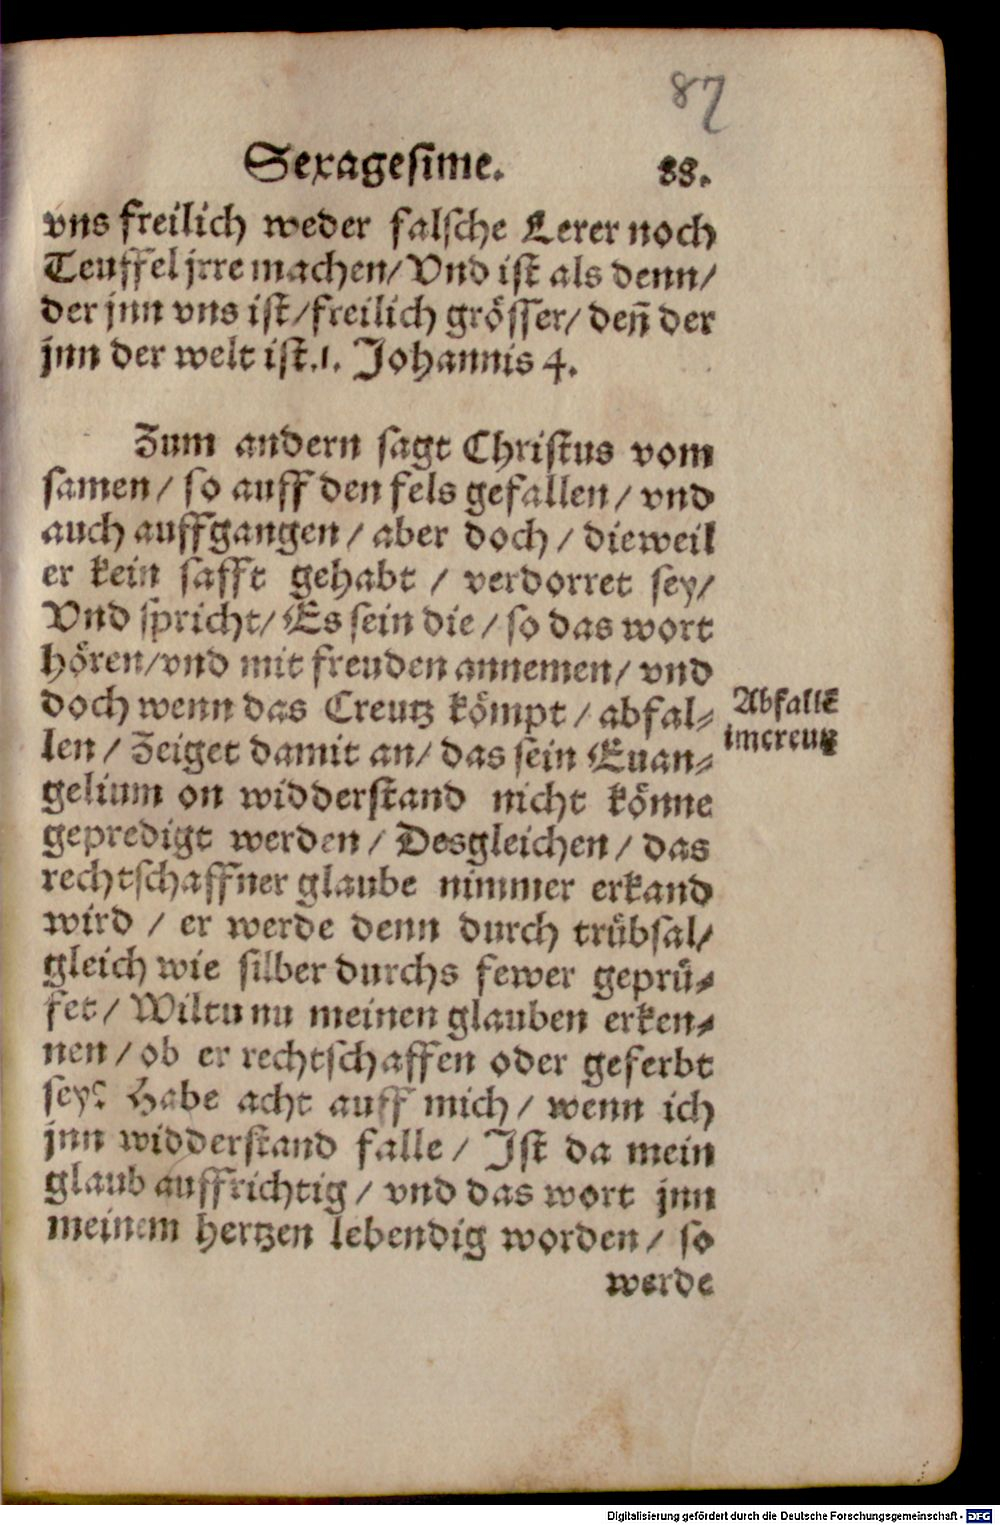 87
Sexagesime. 88.
vns freilich weder falsche Lerer noch
Teuffel jrre machen/ Vnd ist als denn/
der jnn vns ist/ freilich grösser/ deñ der
jnn der welt ist.1. Johannis 4.
Zum andern sagt Christus vom
samen/ so auff den fels gefallen/ vnd
auch auffgangen/ aber doch/ dieweil
er kein safft gehabt/ verdorret sey/
Vnd spricht/ Es sein die/ so das wort
hören/ vnd mit freuden annemen/ vnd
doch wenn das Creutz kömpt/ abfal⸗
len/ Zeiget damit an/ das sein Euan⸗
gelium on widderstand nicht könne
gepredigt werden/ Desgleichen/ das
rechtschaffner glaube nimmer erkand
wird/ er werde denn durch trübsal/
gleich wie silber durchs fewer geprü⸗
fet/ Wiltu nu meinen glauben erken⸗
nen/ ob er rechtschaffen oder geferbt
sey? Habe acht auff mich/ wenn ich
jnn widderstand falle/ Ist da mein
glaub auffrichtig/ vnd das wort jnn
meinem hertzen lebendig worden/ so
werde
Abfallē
im creutz
Digitalisierung gefördert durch die Deutsche Forschungsgemeinschaft - DFG